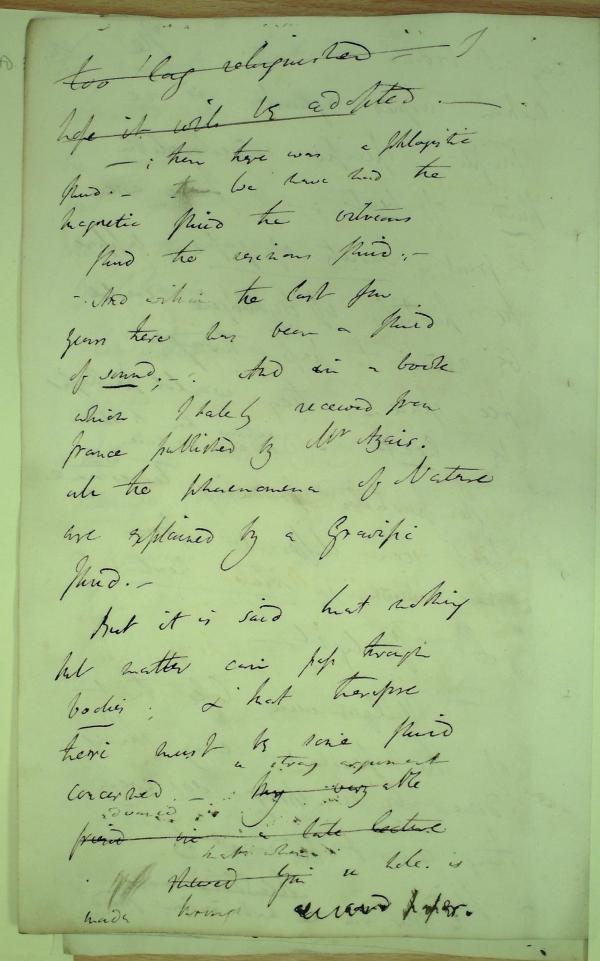 too long relinquished – I
hope it will be adopted. —
— ; then there was a phlogistic
fluid. – then we have had the
magnetic fluid the vitreous
fluid the resinous fluid; –
– And within the last few
years there has been a fluid
of sound; – . And in a book
which I lately received from
France published by Mr Azais.
all the phaenomena of Nature
are explained by a Gravific
fluid. –
But it is said that nothing
but matter can pass through
bodies ; & that therefore
there must be some fluid
a strong argument
concerned. – My very able
advanced is
friend in a late lecture
that when
shewed you a hole is
made through and paper.